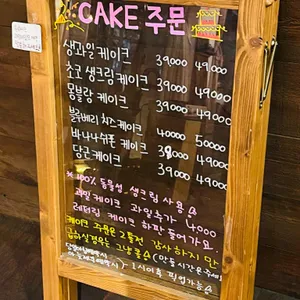 CAKE 주문
생과일 케이크 39,000 49,000
초코 생크림 케이크 39,000 49,000
몽블랑 케이크 39,000 49,000
블루베리 치즈케이크 40000 50000
바나나쉬폰 케이크 39,000 49,000
당근 케이크 39,000 49,000
* 100% 동물성 생크림 사용
과일 케이크 과일추가 4,000
레터링 케이크 하판 둘러가요.
케이크 주문은 2틀전 감사하지만
(만들시간은 주세요
1시이후 픽업가능